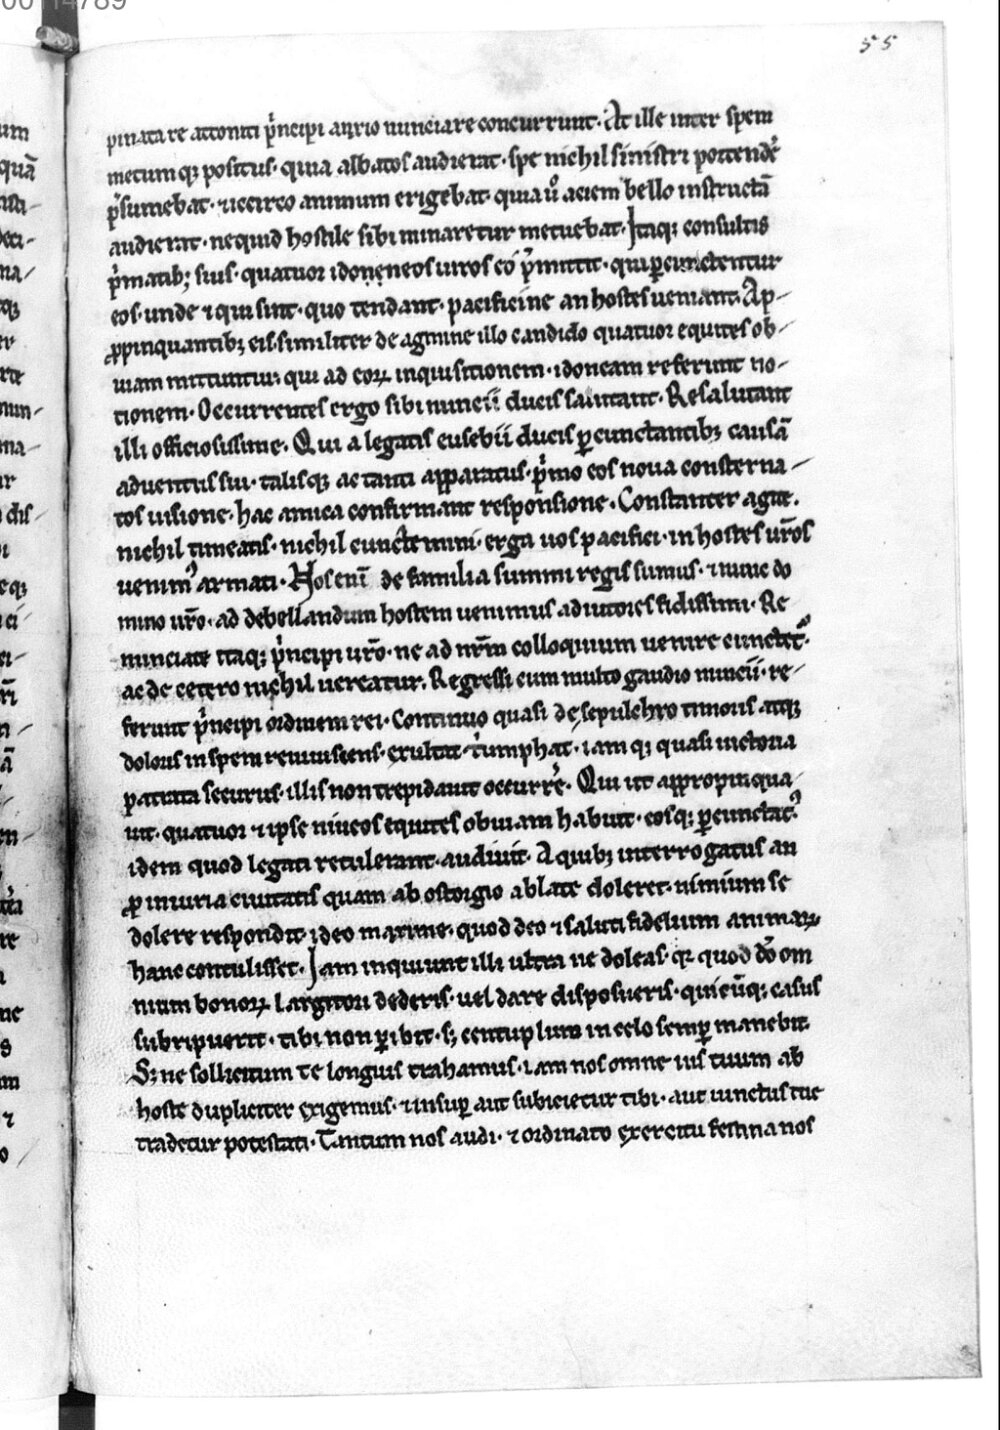 55
pinata re attoniti p̾ncipi anxio nunciare concurrunt. At ille inter spem
metum qȝ positus. quia albatos audierat. spe nichil sinistri portend̾e
p̾sumebat. ⁊ iccirco animum erigebat. quia u̾o aciem bello instructā
audierat. ne quid hostile sibi minaretur metuebat. Itaqȝ consultis
p̾matibȝ suis. quatuor idoneneos uiros eo p̾mittit. qui ꝑcunctentur
eos. unde ⁊ qui sint. quo tendant. pacificine an hostes ueniant. Ap-
ꝓpinquantibȝ eis. similiter de agmine illo candido quatuor equites ob-
uiam mittuntur. qui ad eoꝝ inquisitionem. idoneam referunt no-
tionem. Occurrentes ergo sibi nuncii ducis salutant. Resalutant
illi officiosissime. Qui a legatis eusebii ducis ꝑcunctantibȝ causā
aduentus sui. talisqȝ ac tanti apparatus. p̾mo eos noua consterna-
tos uisione. hac amica confirmant responsione. Constanter agite.
nichil timeatis. nichil cunctemini. erga uos pacifici. in hostes ur̄os
uenimꝰ armati. Nos eni̅ de familia summi regis sumus. ⁊ nunc do
mino ur̄o. ad debellandum hostem uenimus adiutores fidissimi. Re
nunciate itaqȝ p̾ncipi ur̄o. ne ad nr̄m colloquium uenire cunctetꝰ.
ac de cetero nichil uereatur. Regressi cum multo gaudio nuncii. re-
ferunt p̾ncipi ordinem rei. Continuo quasi de sepulchro timoris atqȝ
doloris in spem reuiuiscens. exultat t̾umphat. iam qȝ quasi uictoria
ꝑatrata securus. illis non trepidauit occurr̾e. Qui ut appropinqua-
uit. quatuor ⁊ ipse niueos equites obuiam habuit. eosqȝ ꝑcunctatꝰ.
idem quod legati retulerant. audiuit. A quibȝ interrogatus an
ꝓ iniuria ciuitatis quam ab ostorgio ablate doleret. nimium se
dolere respondit. ideo maxime. quod deo ⁊ saluti fidelium animaꝝ
hanc contulisset. Iam inquiunt illi ultra ne doleas. qꝛ quod d̅o om
nium bonoꝝ largitori dederis. uel dare disposueris. quicu̅qȝ casus
subripuerit. tibi non ꝑibit. sȝ centuplum in celo semꝑ manebit.
Sȝ ne sollicitum te longius trahamus. iam nos omne ius tuum ab
hoste dupliciter exigemus. ⁊ insuꝑ aut subicietur tibi. aut uinctus tue
tradetur potestati. Tantum nos audi. ⁊ ordinato exercitu festina nos